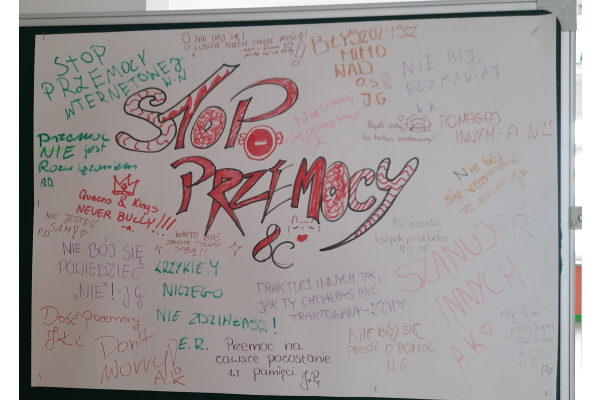 STOP
PRZEMOCY
WTERNETOWEJ
W.N
NIE DAJ SIĘ!
LUDZIE NIECH SMOJE MYŚLĄ!
BŁYSZCZYSZ
MIMO
WAD
O.S &
J.G.
NIE BIJ,
ROZMAWIAJ
K.K
STOP
PRZEMOCY
8c
Bądź sobą
POMAGAJ
INNYM-A.N
Przemoc
NIE jest
Rozwiązaniem
AD
Queens & Kings
NEVER BULLY!!!
NIE JESTEŚ
SAM
WARTO BYĆ
SOBĄ!!
Nie bój
się rozmawiać
Nie oceniaj
książki po okładce
M.S.
SZANUJ
INNYCH
A.K
NIE BÓJ SIĘ
POWIEDZIEĆ
„NIE"!-JG
KRZYKIEM
NICZEGO
NIE ZDZIAŁASZ!
E.R.
TRAKTUJ INNYCH TAK,
JAK TY CHCIAŁBYŚ BYĆ
TRAKTOWANY-Z.CH
Dość Przemocy
Don't
Worry!
A.K
Przemoc na
zawsze pozostanie
w pamięci
NIE BÓJ SIĘ
PROSIĆ O POMOC
W.G.
Hej Tym
jesteś super